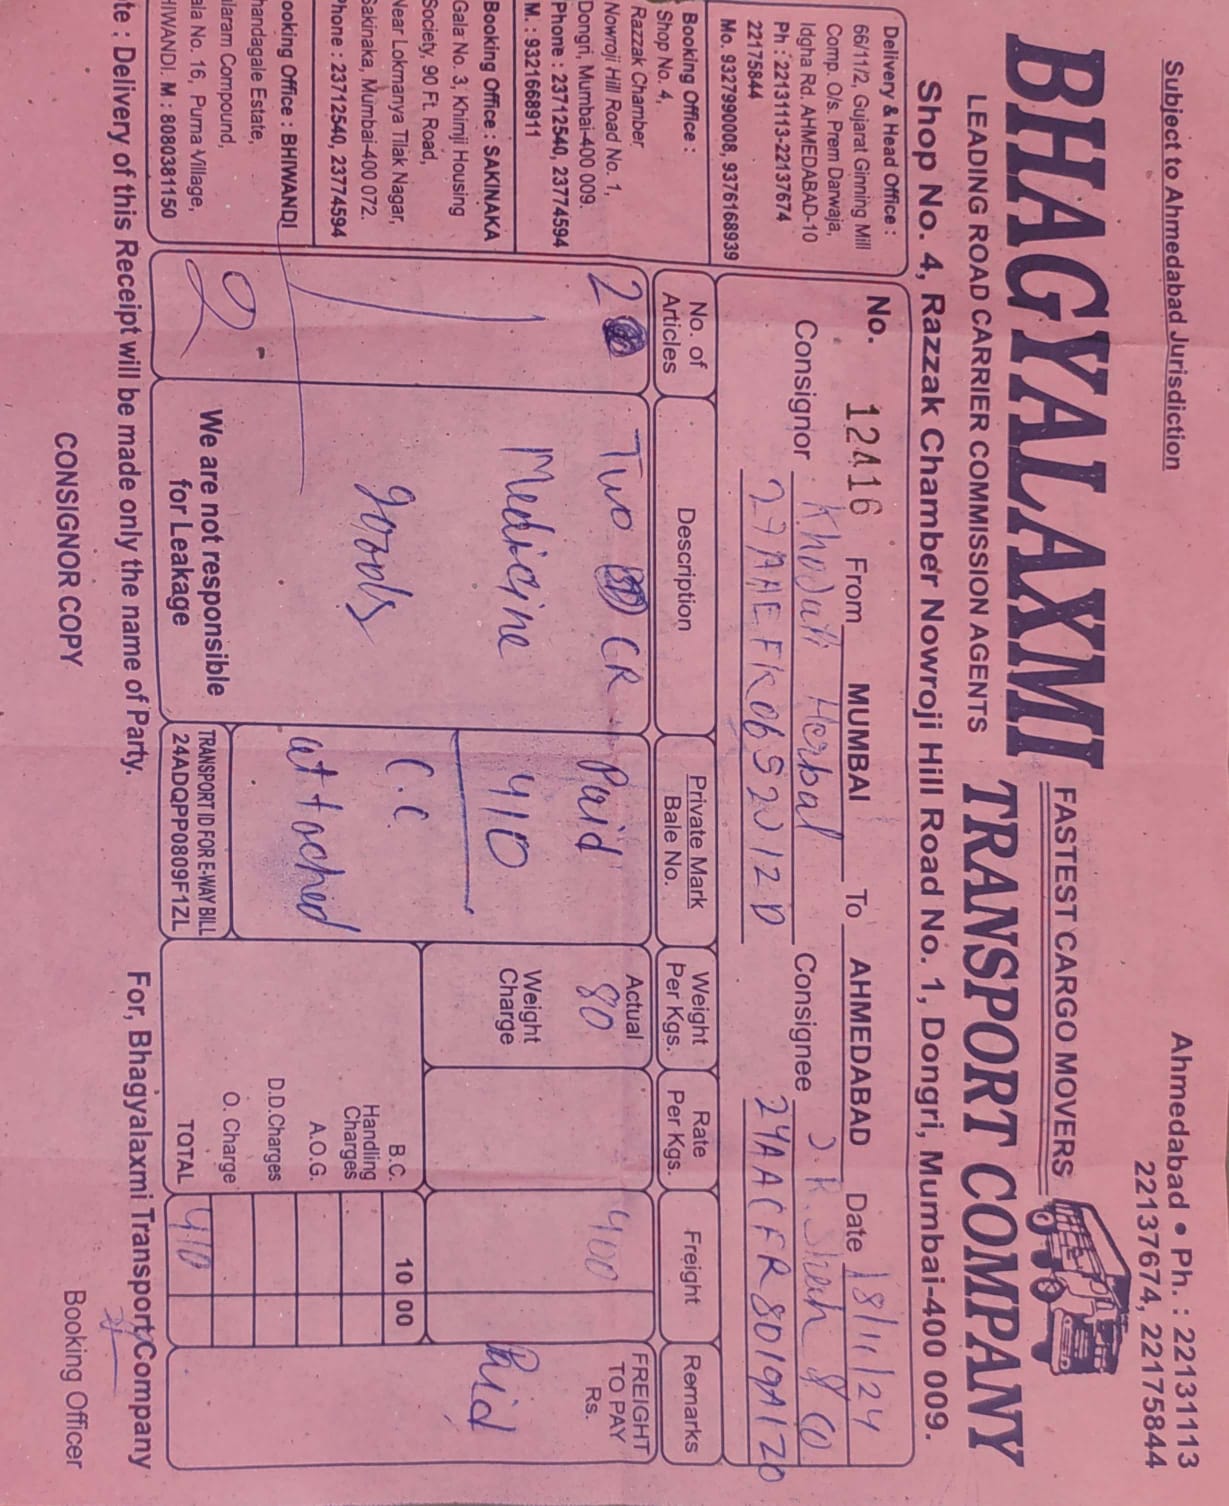 Subject to Ahmedabad Jurisdiction
Ahmedabad • Ph. : 22131113
22137674, 22175844
BHAGYALAXMI
FASTEST CARGO MOVERS
LEADING ROAD CARRIER COMMISSION AGENTS
TRANSPORT COMPANY
Shop No. 4, Razzak Chamber Nowroji Hill Road No. 1, Dongri, Mumbai-400 009.
Delivery & Head Office :
66/11/2, Gujarat Ginning Mill
Comp. O/s. Prem Darwaja,
Idgha Rd. AHMEDABAD-10
Ph : 22131113-22137674
22175844
Mo. 9327990008, 9376168939
Booking Office :
Shop No. 4,
Razzak Chamber,
Nowroji Hill Road No. 1,
Dongri, Mumbai-400 009.
Phone : 23712540, 23774594
M. : 9321668911
Booking Office : SAKINAKA
Gala No. 3, Khimji Housing
Society, 90 Ft. Road,
Near Lokmanya Tilak Nagar,
Sakinaka, Mumbai-400 072.
Phone : 23712540, 23774594
ooking Office : BHIWANDI
handagale Estate,
laram Compound,
ala No. 16, Purna Village,
HIWANDI. M : 8080381150
No. 12416 From MUMBAI To AHMEDABAD Date 18/11/24
Consignor Herbal Consignee J. R. Shah & Co
No. of Articles
Description
Private Mark
Bale No.
Weight Per Kgs.
Rate Per Kgs.
Freight
Remarks
2 Two CR Paid Actual 80 400 FREIGHT TO PAY Rs.
Medicine 410 Weight Charge Paid
goods C.C
attached
2
We are not responsible
for Leakage
TRANSPORT ID FOR E-WAY BILL
24ADQPP0809F1ZL
B.C. 10 00
Handling Charges
A.O.G.
D.D.Charges
O. Charge
TOTAL 410
te : Delivery of this Receipt will be made only the name of Party.
For, Bhagyalaxmi Transport Company
CONSIGNOR COPY
Booking Officer